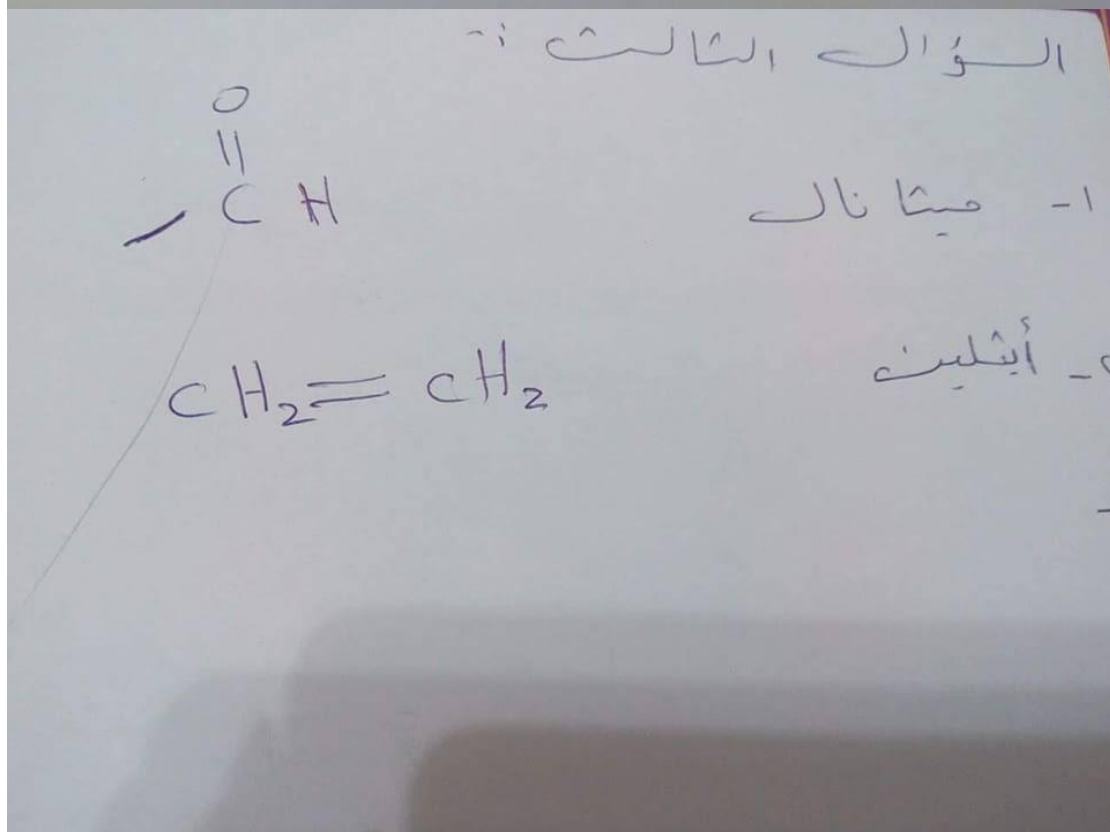 السؤال الثالث :-
١- ميثانال
O
||
- C H
- أيثلين
CH₂=CH₂
-